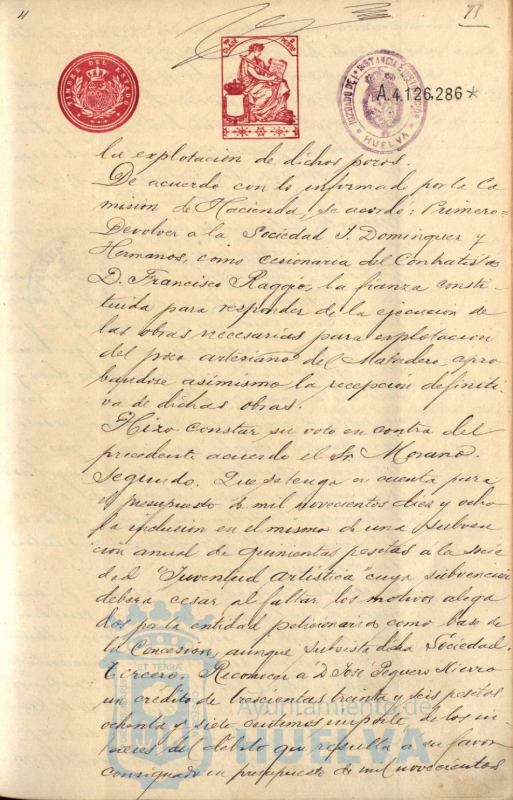 77
TIMBRE DEL ESTADO
CLASE
PESETA
JUZGADO DE 1ª INSTANCIA E INSTRUCCION
HUELVA
A.4.126.286*
la explotacion de dichos pozos.
De acuerdo con lo informado por la Co
mision de Hacienda, se acordó: Primero=
Devolver a la Sociedad J. Dominguez y
Hermanos, como cesionaria del Contratista
D. Francisco Raggio, la fianza consti-
tuida para responder de la ejecucion de
las obras necesarias para explotacion
del pozo artesiano del Matadero, apro
bandose asimismo la recepcion definiti
va de dichas obras.
Hizo constar su voto en contra del
precedente acuerdo el Sr Morano.
Segundo. Que se tenga en cuenta para
el presupuesto de mil novecientos diez y ocho
la inclusion en el mismo de una subven
cion anual de quinientas pesetas a la socie
dad "Juventud Artística" cuya subvencion
deberá cesar al faltar los motivos alega
dos por la entidad peticionaria como base de
la Concesion, aunque subsista dicha Sociedad.
Tercero. Reconocer á D. José Peguero Hierro
un crédito de trescientas treinta y seis pesetas
ochenta y siete centimos importe de los in-
tereses del débito que resulta a su favor
consignado en presupuesto de mil novecientos
ET TERRA
Ayuntamiento de
HUELVA